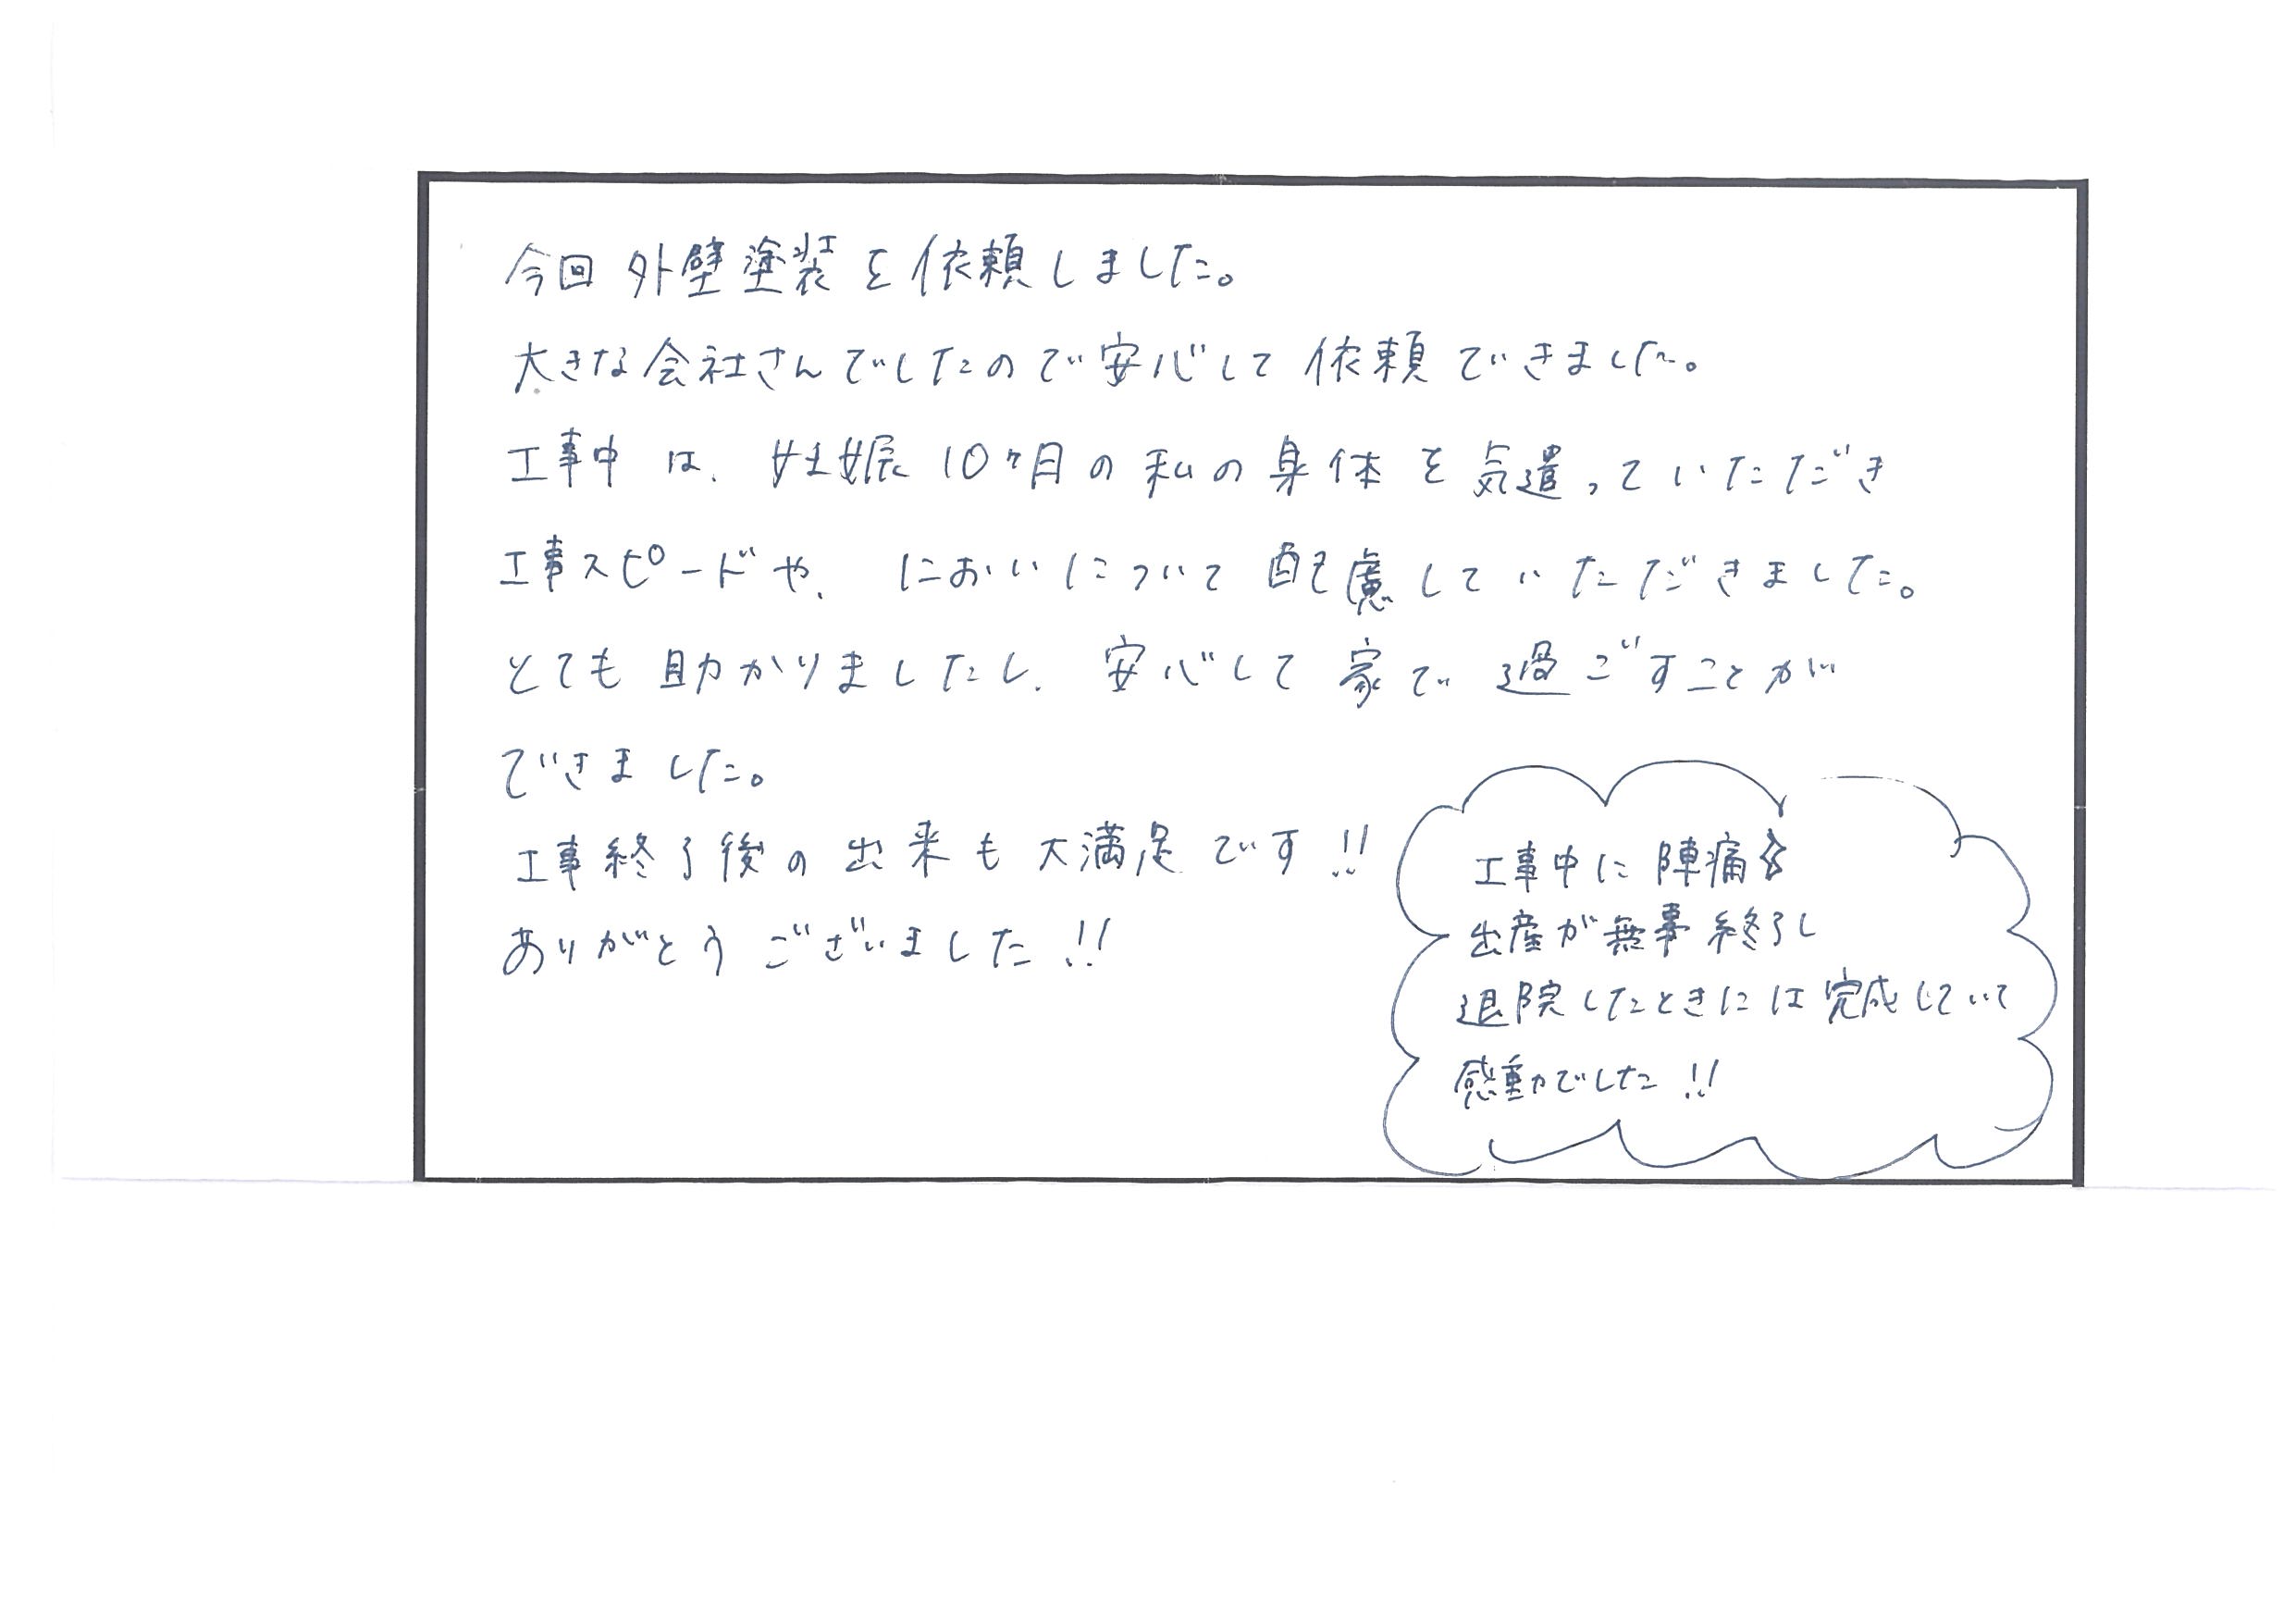 今回外壁塗装を依頼しました。
大きな会社さんでしたので安心して依頼できました。
工事中は、妊娠10ヶ月の私の身体を気遣っていただき
工事スピードや、においについて配慮していただきました。
とても助かりましたし、安心して家で過ごすことが
できました。
工事終了後の出来も大満足です!!
ありがとうございました!!
工事中に陣痛
出産が無事終了し
退院したときには完成していて
感動でした!!